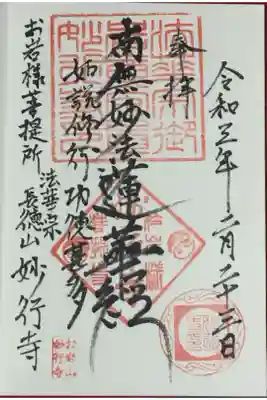 令和三年二月二十三日
奉拝
南無妙法蓮華経
如説修行功徳甚多
お岩様菩提所
法華宗
長徳山妙行寺